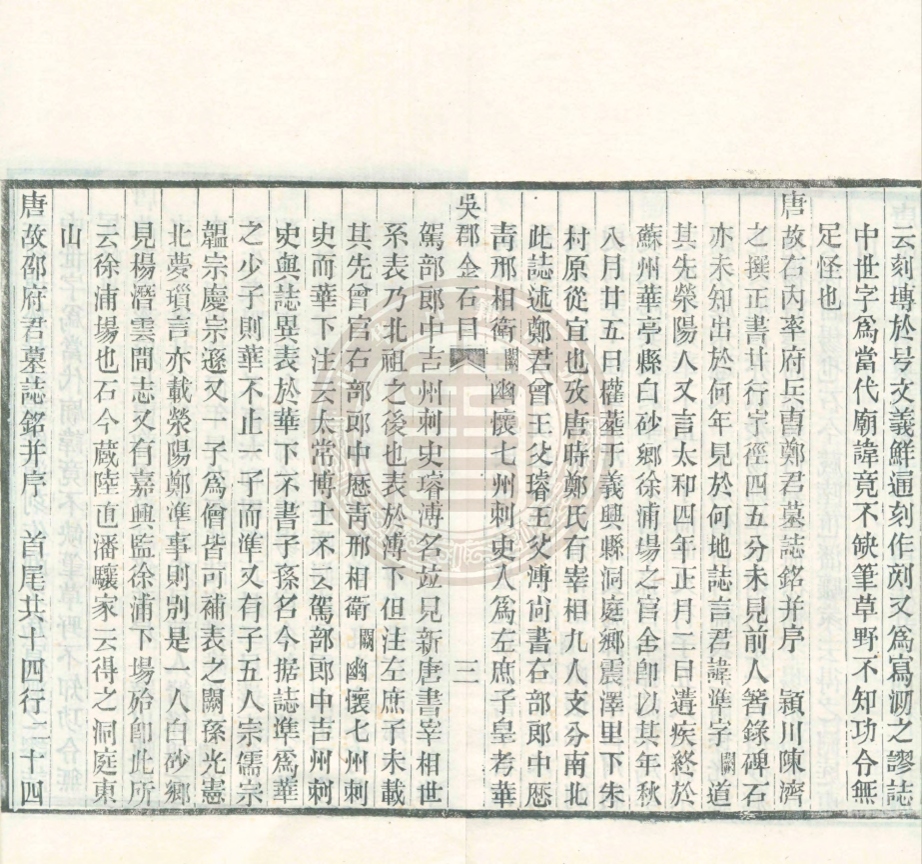 云刻塼於号文義鮮通刻作刻又爲寫泐之謬誌
中世字爲當代廟諱竟不缺筆草野不知功令無
足怪也
唐故右內率府兵曹鄭君墓誌銘并序 潁川陳濟
之撰正書廿行字徑四五分未見前人箸錄碑石
亦未知出於何年見於何地誌言君諱準字闕道
其先榮陽人又言太和四年正月二日遘疾終於
蘇州華亭縣白砂鄉徐浦場之官舍卽以其年秋
八月廿五日權葬于義興縣洞庭鄉震澤里下朱
村原從宜也攷唐時鄭氏有宰相九人支分南北
此誌述鄭君曾王父璿王父溥尙書右部郎中歷
靑邢相衛闕幽懷七州刺史入爲左庶子皇考華
吳郡金石目 三
駕部郎中吉州刺史璿溥名竝見新唐書宰相世
系表乃北祖之後也表於溥下但注左庶子未載
其先曾官右部郎中歷靑邢相衛闕幽懷七州刺
史而華下注云太常博士不云駕部郎中吉州刺
史與誌異表於華下不書子孫名今据誌準爲華
之少子則華不止一子而準又有子五人宗儒宗
韞宗慶宗遜又一子爲僧皆可補表之闕孫光憲
北夢瑣言亦載榮陽鄭準事則別是一人白砂鄉
見楊濳雲間志又有嘉興監徐浦下場殆卽此所
云徐浦場也石今藏陸直潘驤家云得之洞庭東
山
唐故邵府君墓誌銘并序 首尾共十四行二十四